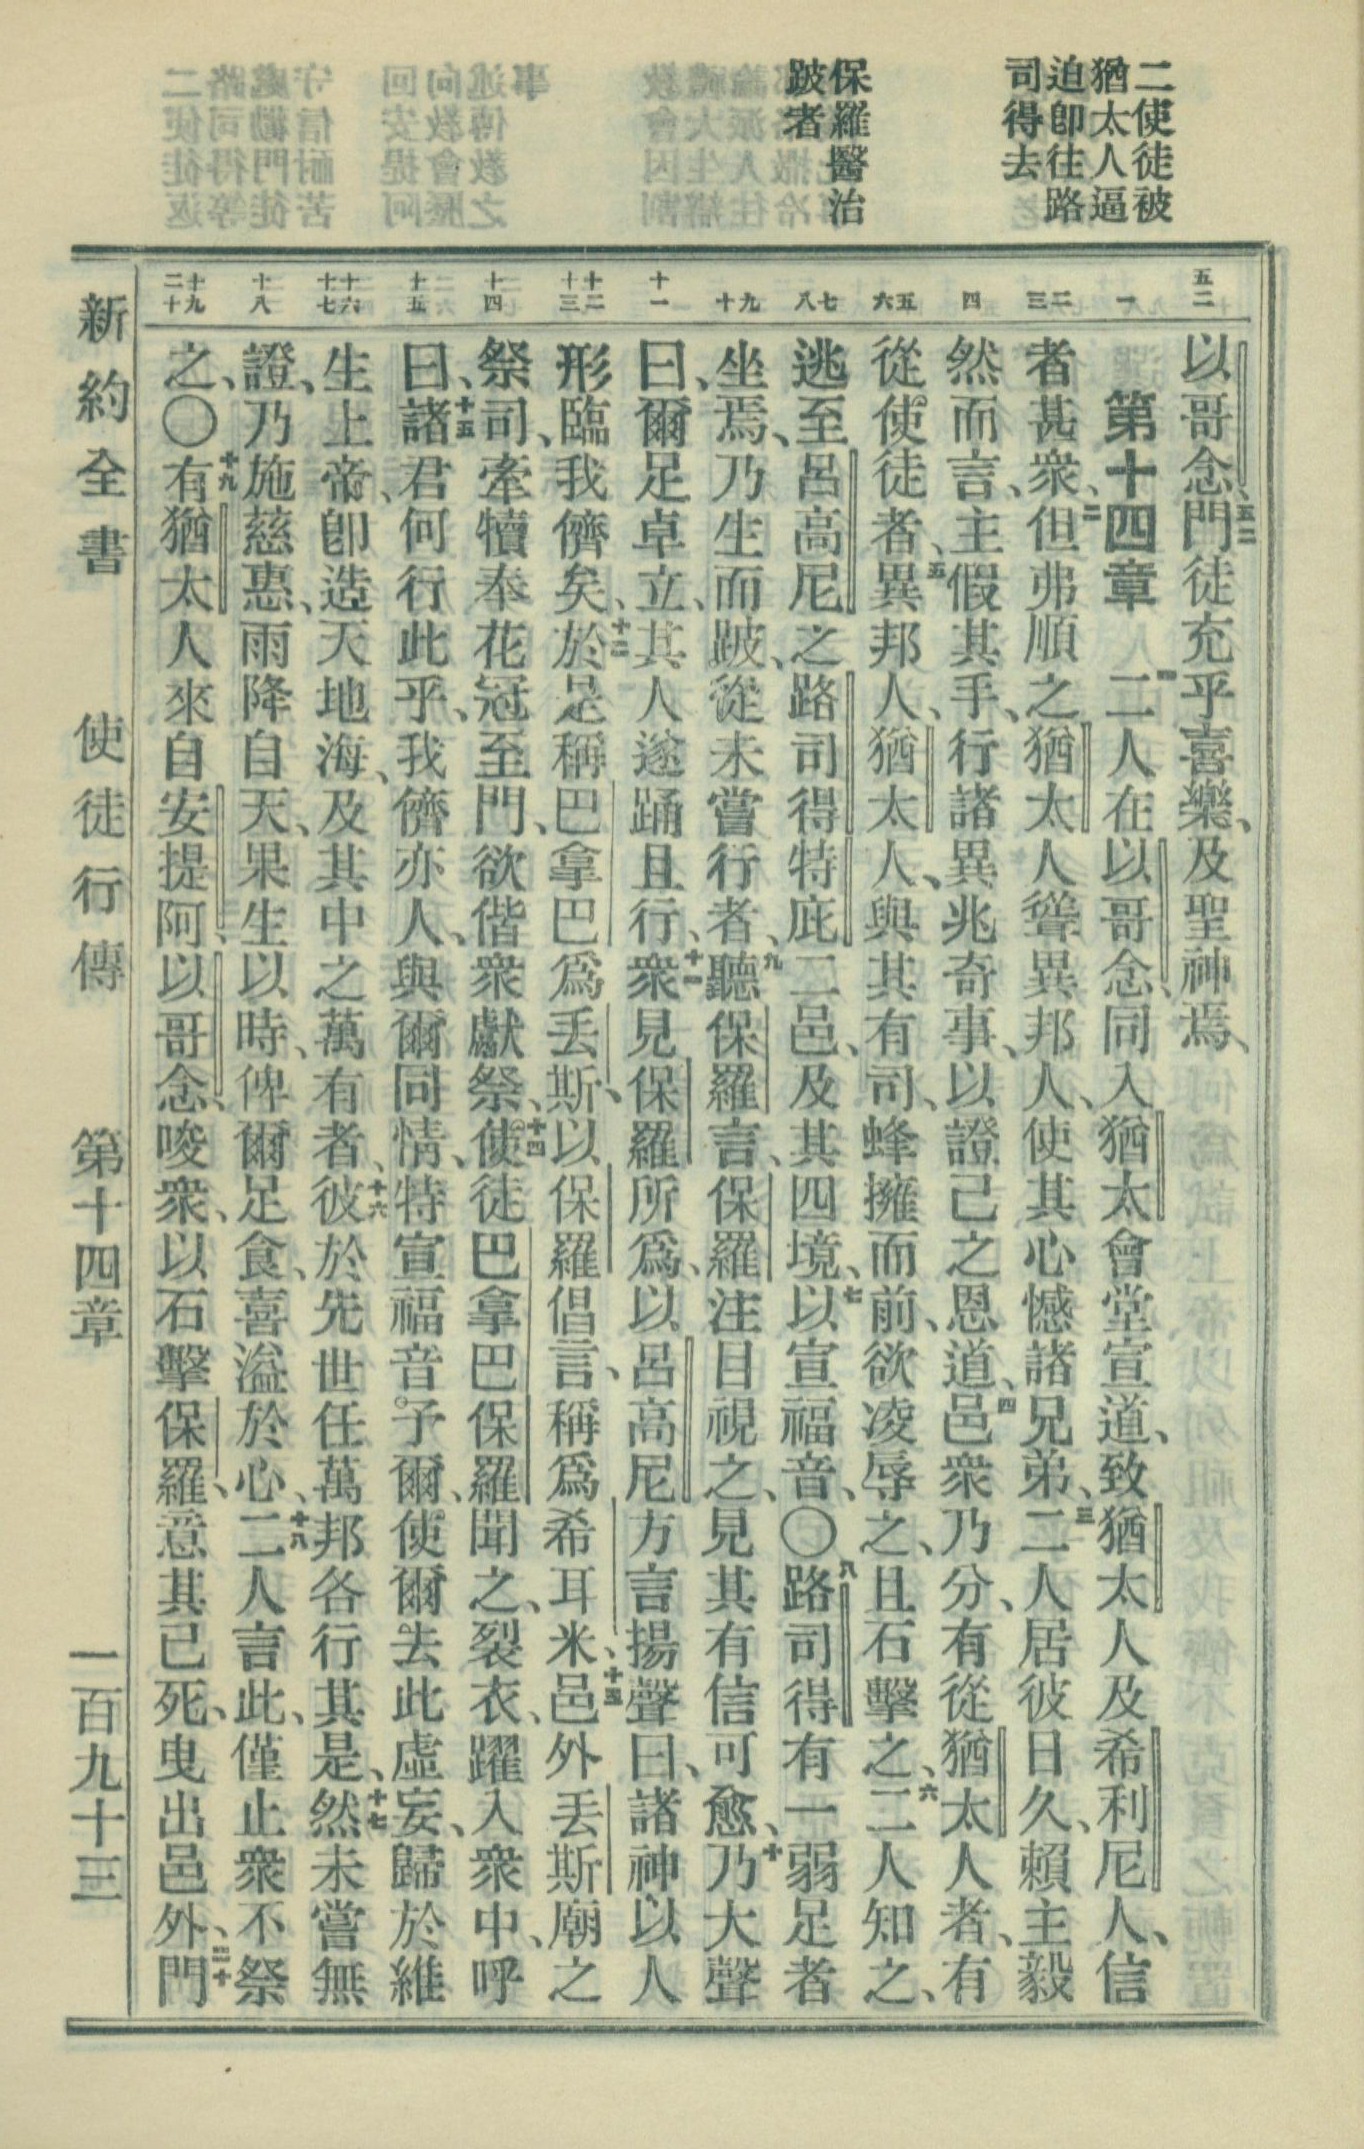 二使徒被
猶太人逼
迫卽往路
司得去
保羅醫治
跛者
五二
一
二
三
四
五
六
七
八
九
十
十一
十二
十三
十四
十五
十六
十七
十八
十九
二十
以哥念、五二門徒充乎喜樂、及聖神焉、
第十四章 一二人在以哥念、同入猶太會堂宣道、致猶太人及希利尼人、信
者甚衆、二但弗順之猶太人聳異邦人、使其心憾諸兄弟、三二人居彼日久、賴主毅
然而言、主假其手、行諸異兆奇事、以證己之恩道、四邑衆乃分、有從猶太人者、有
從使徒者、五異邦人、猶太人、與其有司、蜂擁而前、欲凌辱之、且石擊之、六二人知之、
逃至呂高尼之路司得特庇二邑、及其四境、七以宣福音、〇八路司得有一弱足者
坐焉、乃生而跛、從未嘗行者、九聽保羅言、保羅注目視之、見其有信可愈、十乃大聲
曰、爾足卓立、其人遂踊且行、十一衆見保羅所爲、以呂高尼方言揚聲曰、諸神以人
形臨我儕矣、十二於是稱巴拿巴爲丢斯、以保羅倡言、稱爲希耳米、十三邑外丢斯廟之
祭司、牽犢奉花冠至門、欲偕衆獻祭、十四使徒巴拿巴保羅聞之、裂衣、躍入衆中、呼
曰、十五諸君何行此乎、我儕亦人、與爾同情、特宣福音。予爾、使爾去此虛妄、歸於維
生上帝、卽造天地海、及其中之萬有者、十六彼於先世任萬邦各行其是、十七然未嘗無
證、乃施慈惠、雨降自天、果生以時、俾爾足食、喜溢於心、十八二人言此、僅止衆不祭
之、〇十九有猶太人來自安提阿、以哥念、唆衆、以石擊保羅、意其已死、曳出邑外、二十門
新約全書 使徒行傳 第十四章 一百九十三